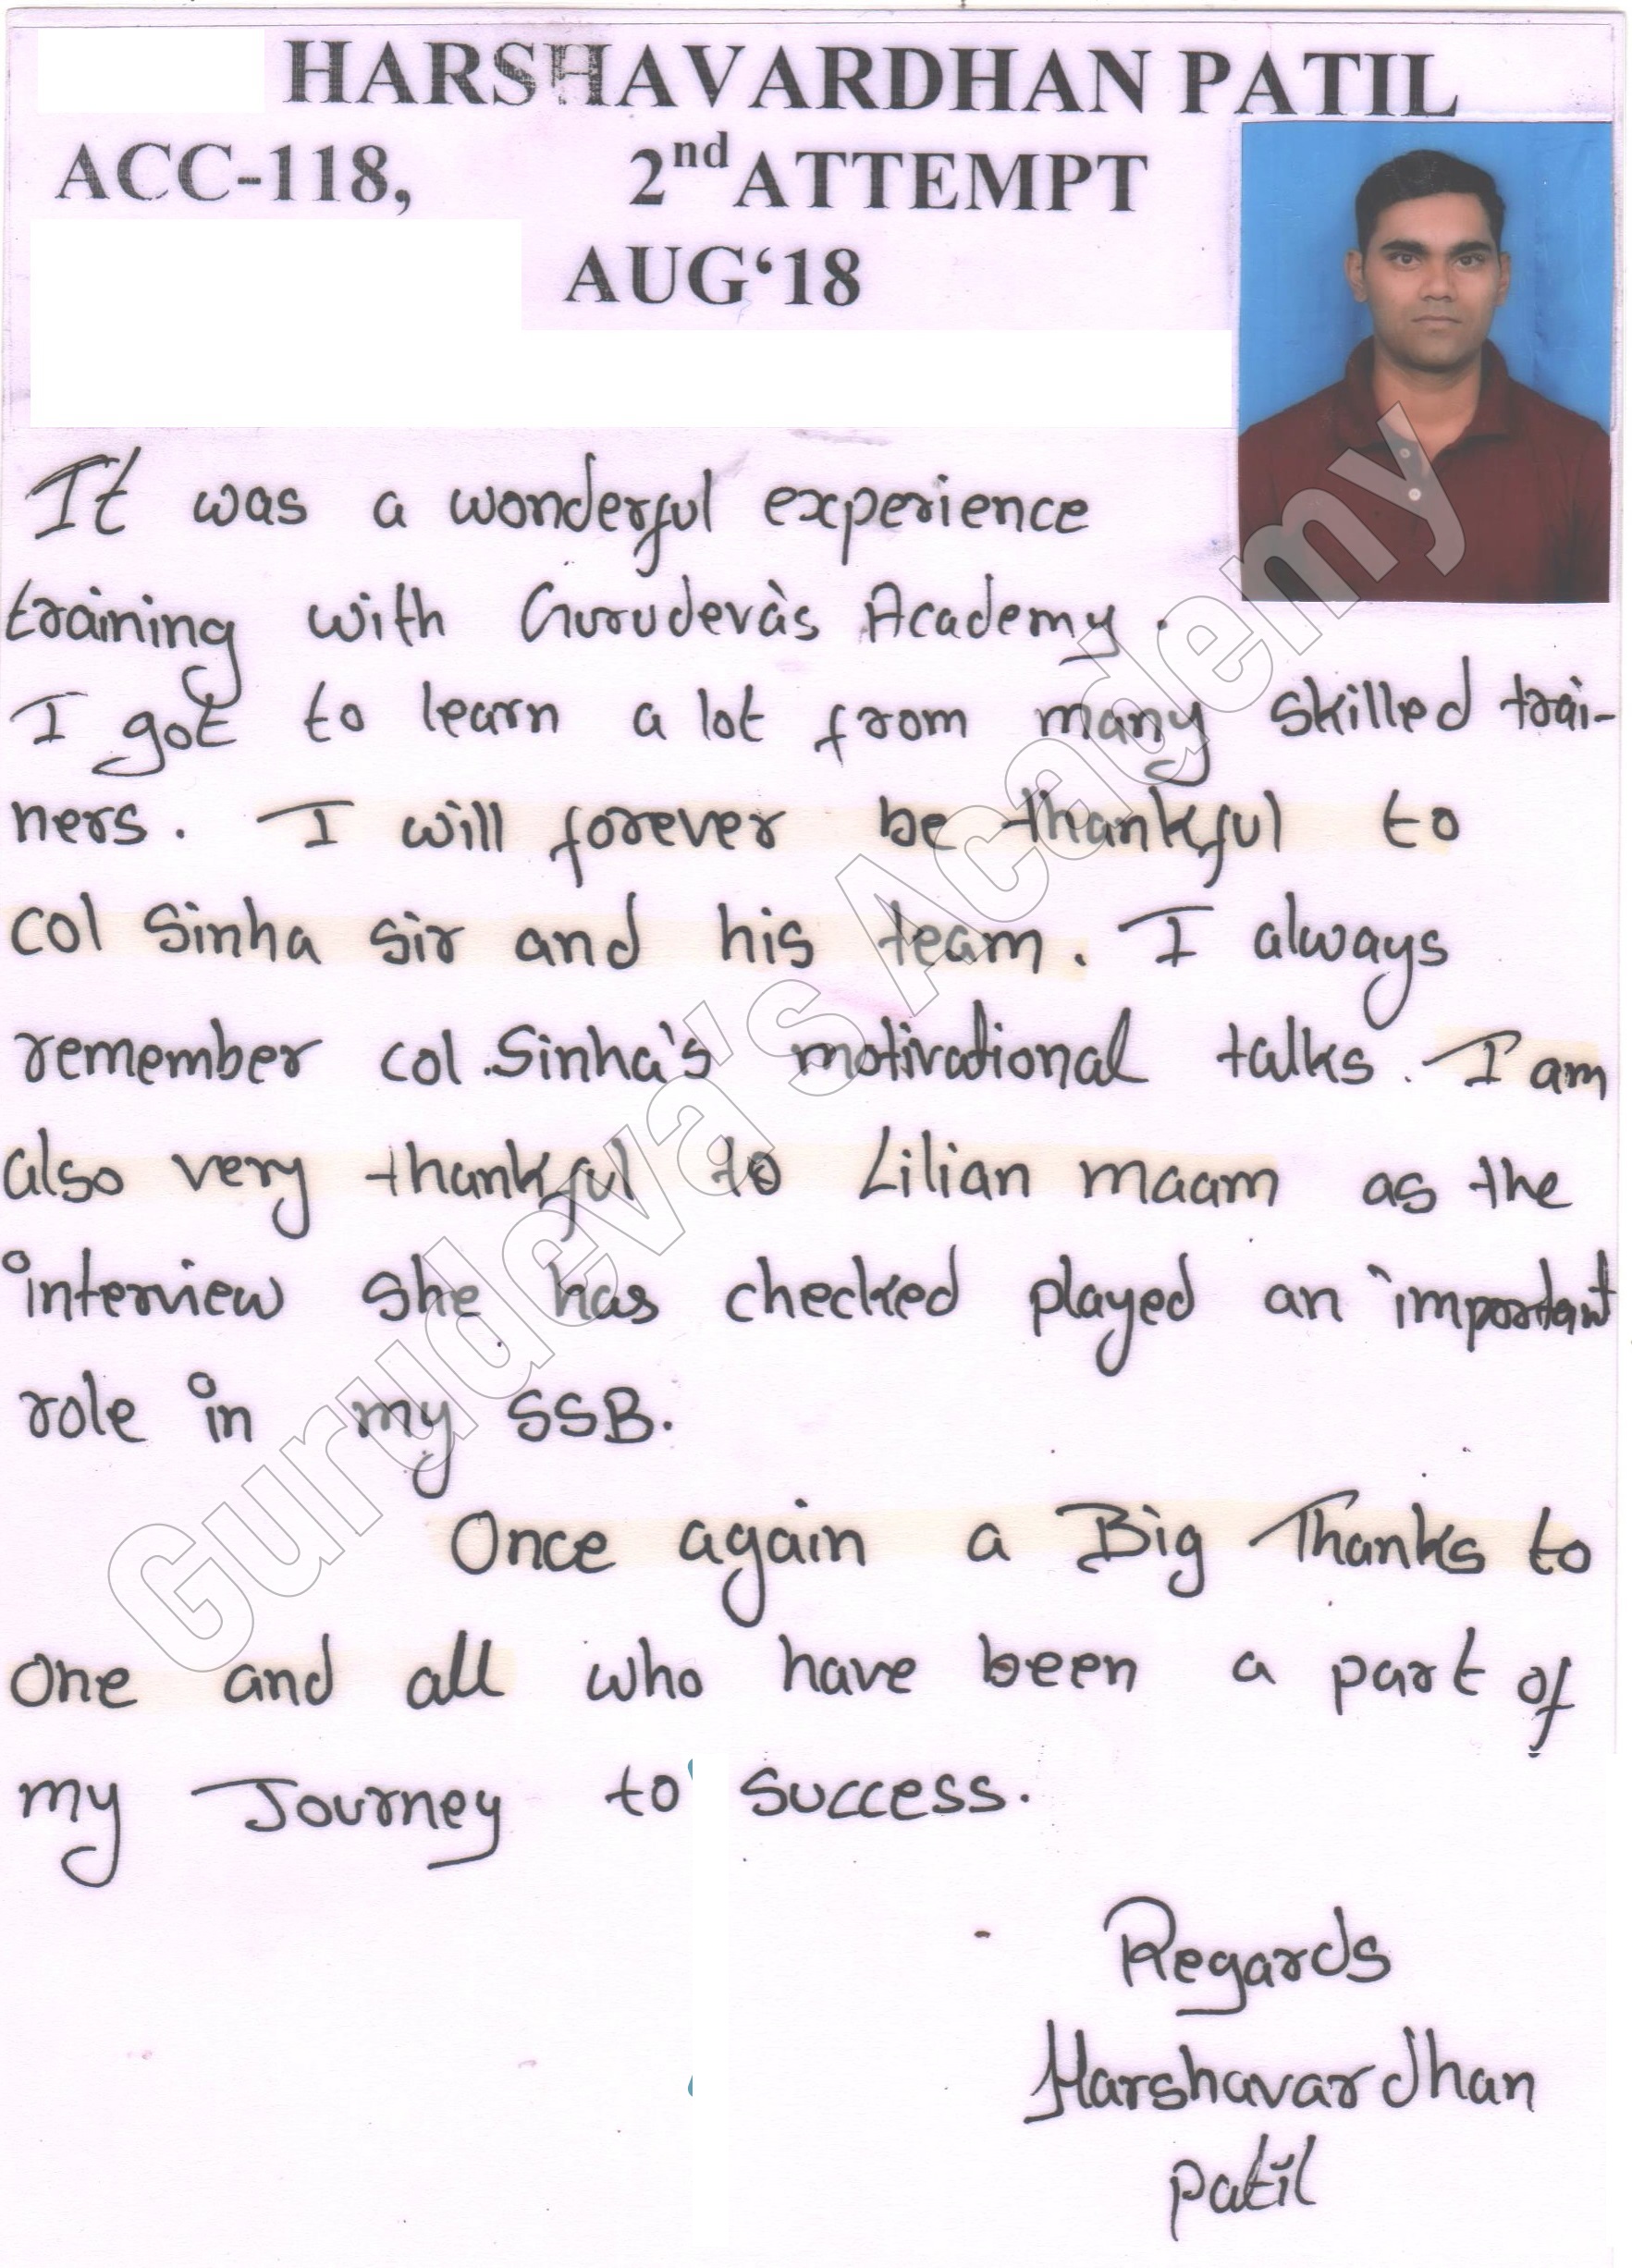 HARSHAVARDHAN PATIL
ACC-118, 2nd ATTEMPT
AUG‘18
It was a wonderful experience
training with Gurudeva's Academy.
I got to learn a lot from many skilled trai-
ners. I will forever be thankful to
col Sinha sir and his team. I always
remember col.Sinha's motivational talks. I am
also very thankful to Lilian maam as the
interview she has checked played an important
role in my SSB.
Once again a Big Thanks to
one and all who have been a part of
my Journey to success.
Regards
Harshavardhan
patil
Gurudeva's Academy